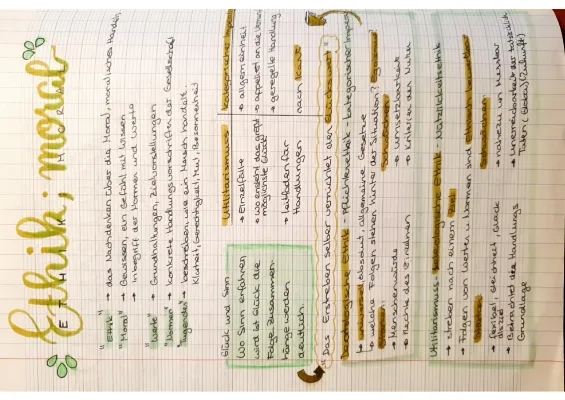 Ethik; moral
ETHIK MORAL
"Ethik" → das Nachdenken über die Moral, moralisches handeln
"Moral" → Gewissen, ein Gefühl mit Wissen
→ Inbegriff der Normen und Werte
"Werte" → Grundhaltungen, Zielvorstellungen
"Normen" → konkrete Handlungsvorschriften der Gesellschaft
"Tugenden" → beschreiben, wie ein Mensch handelt
Klarheit, Gerechtigkeit, Mut, Besonnenheit
Glück und Sinn
Wo Sinn erfahren
wird ist Glück die
Folge. Zusammen-
hänge werden
deutlich.
Utilitarismus
→ Einzelfälle
→ Wo entsteht das größt
möglichste Glück?
→ Leitfaden für
Handlungen
Kategorischer Imperativ
→ allgemeinheit
→ appelliert an die Vernunft
→ geregelte Handlung
nach Kant
"Das Erstreben selber vernichtet den Glückswert"
Deontologische Ethik - Pflichtenethik - kategorischer Imperativ
→ universal, absolut, allgemeine Gesetze
→ welche Folgen stehen hinter der Situation?
→ Menschenwürde
→ Rechte des einzelnen
Schwächen:
→ Umsetzbarkeit
→ Kriterien des Nutzen
Utilitarismus - teleologische Ethik - Nützlichkeitsethik
→ streben nach einem Ziel
→ Folgen von Werten u. Normen sind ethisch
Stärken:
→ flexibel, Glück
→ Betrachtet die Handlungs
Grundlage
Schwächen:
→ nahezu
→ Unerreichbarkeit der tatsächlich
(Zukunft)